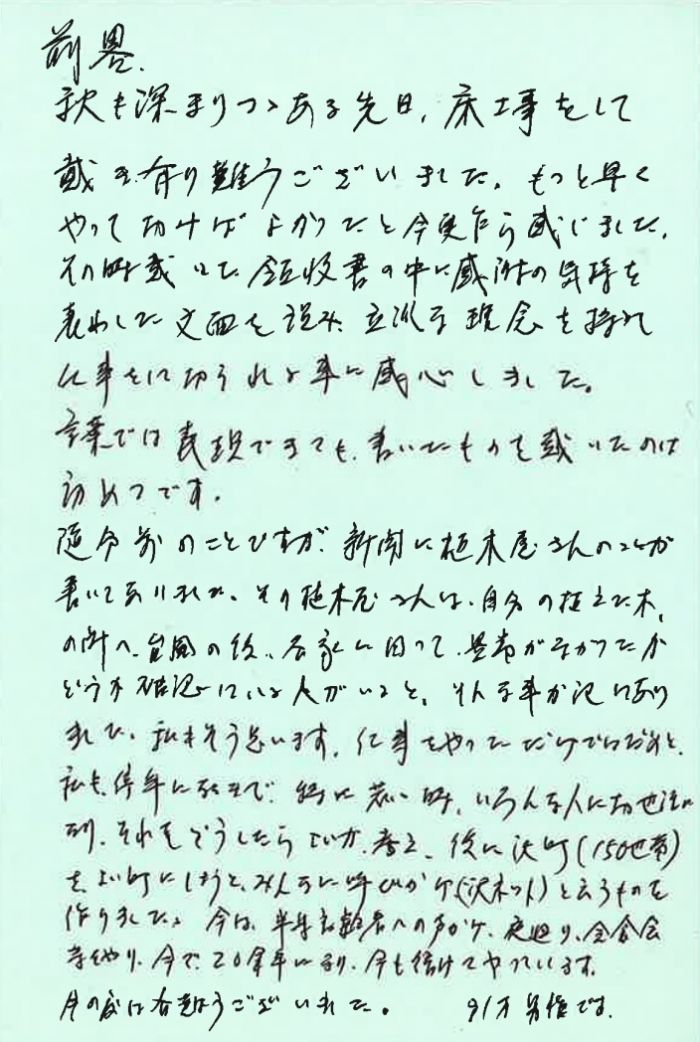 前略、
秋も深まりつゝある先日、床工事をして
戴き有り難うございました。もっと早く
やって頂けばよかったと今更乍ら感じました。
その時戴いた領収書の中に感謝の気持を
表わした文面を読み、立派な理念を持れ
仕事をして居られる事に感心しました。
言葉では表現できても、書いたものを戴いたのは
初めてです。
随分前のことですが、新聞に植木屋さんのことが
書いてありました。その植木屋さんは、自分の植えた木、
の所へ、台風の後、各家に回って、異常がなかったか
どうか確認している人がいると、そんな事が記してあり
ました。私もそう思います。仕事をやっただけではだめと、
私も停年になるまで、特に若い時、いろんな人にお世話に
なり、それをどうしたらよいか、考え、後に沢町(150世帯)
を、よい町にしようと、みんなに呼びかけ(沢ネット)と云うものを
作りました。今は、単身高齢者への声かけ、夜廻り、会食会
等をやり、今で、20余年になり、今も続けてやっています。
この度は有難うございました。 91才 男性です。